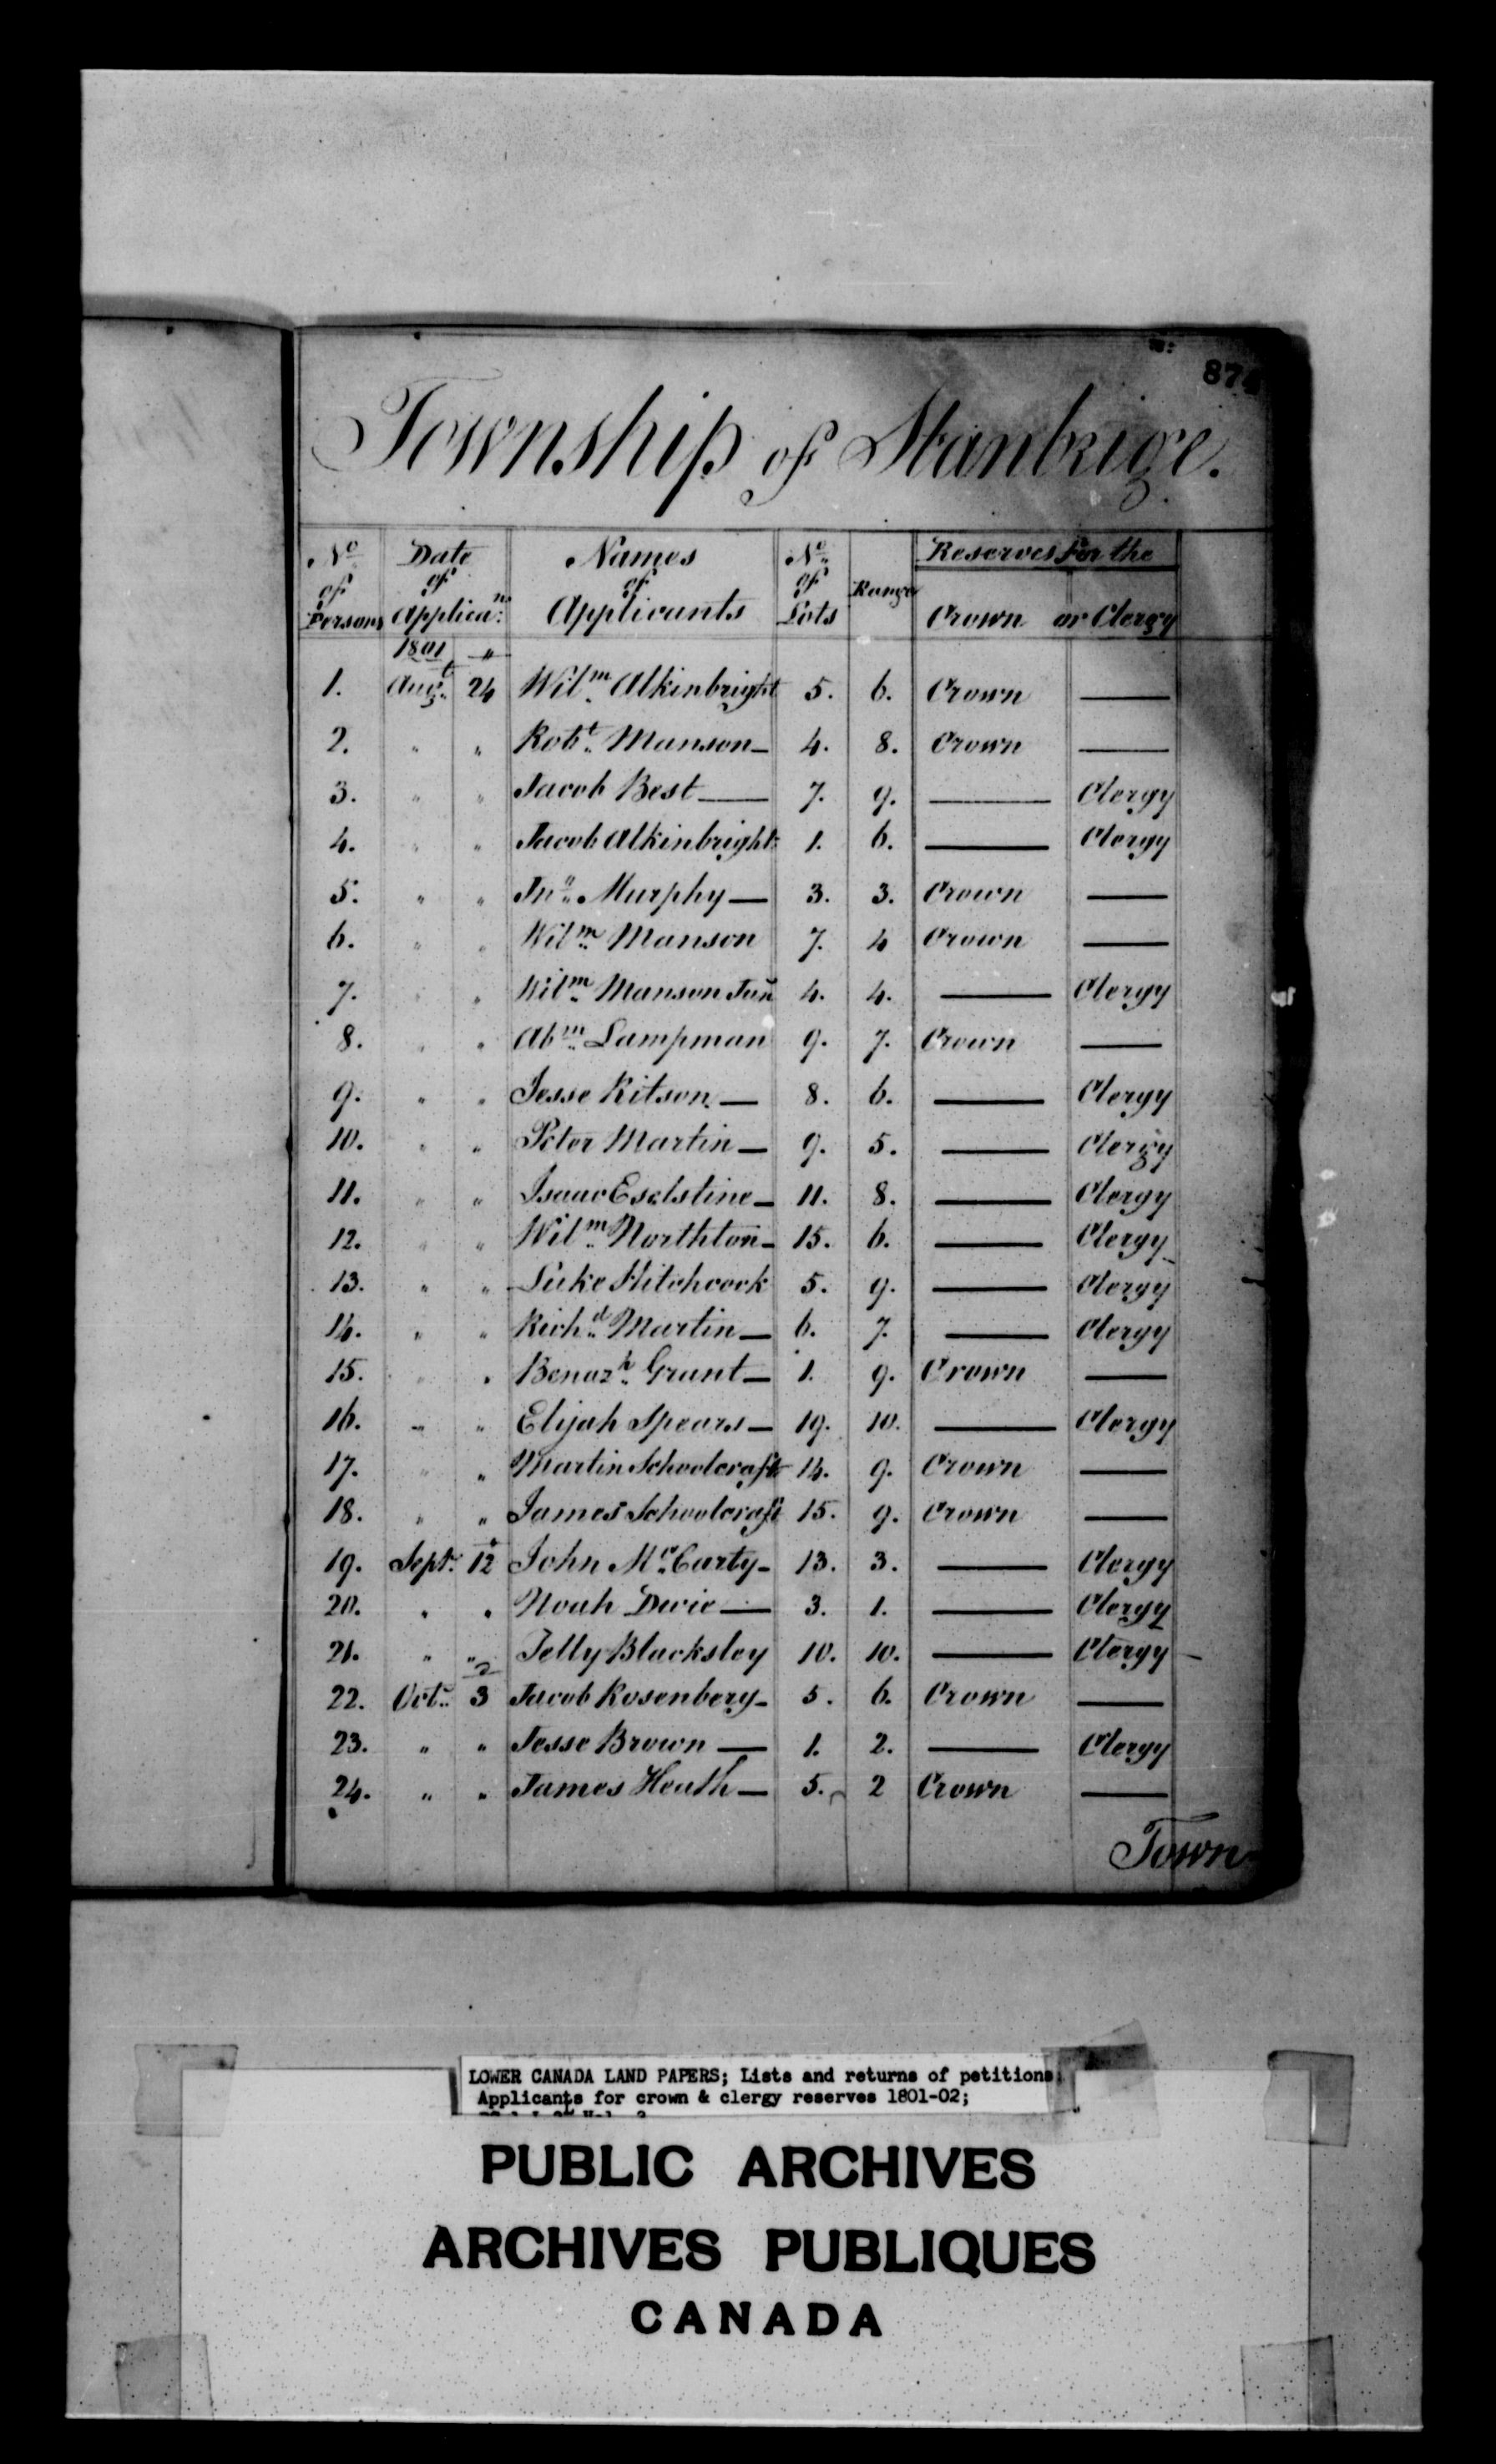 874
Township of Stanbrige.
No of Persons Date of Applican: Names of Applicants No of Lots Range Reserves For the Crown or Clergy
1801 "
1. Augt. 24 Wilm Alkinbright 5. 6. Crown —
2. " " Robt. Manson — 4. 8. Crown —
3. " " Jacob Best — 7. 9. — Clergy
4. " " Jacob Alkinbright 1. 6. — Clergy
5. " " Jno. Murphy — 3. 3. Crown —
6. " " Wilm Manson 7. 4 Crown —
7. " " Wilm Manson Junr 4. 4. — Clergy
8. " " Abm Lampman 9. 7. Crown —
9. " " Jesse Kitson — 8. 6. — Clergy
10. " " Peter Martin — 9. 5. — Clergy
11. " " Isaac Eselstine — 11. 8. — Clergy
12. " " Wilm Northton — 15. 6. — Clergy
13. " " Luke Hitchcock 5. 9. — Clergy
14. " " Richd. Martin — 6. 7. — Clergy
15. " " Benazh. Grant — 1. 9. Crown —
16. " " Elijah Spears — 19. 10. — Clergy
17. " " Martin Schoolcraft 14. 9. Crown —
18. " " James Schoolcraft 15. 9. Crown —
19. Sept. 12 John Mc.Carty — 13. 3. — Clergy
20. " " Noah Dewie — 3. 1. — Clergy
21. " " Jelly Blacksley 10. 10. — Clergy
22. Octr. 3 Jacob Rosenbery — 5. 6. Crown —
23. " " Jesse Brown — 1. 2. — Clergy
24. " " James Heath — 5. 2 Crown —
Town
LOWER CANADA LAND PAPERS; Lists and returns of petitions;
Applicants for crown & clergy reserves 1801-02;
PUBLIC ARCHIVES
ARCHIVES PUBLIQUES
CANADA